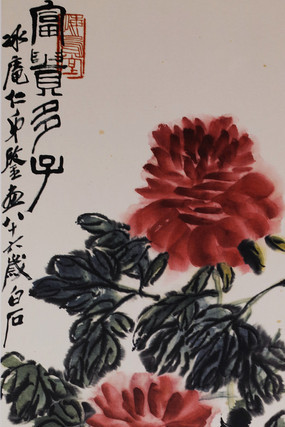 富貴多子
冰庵仁弟鑒 画 八十六歲白石